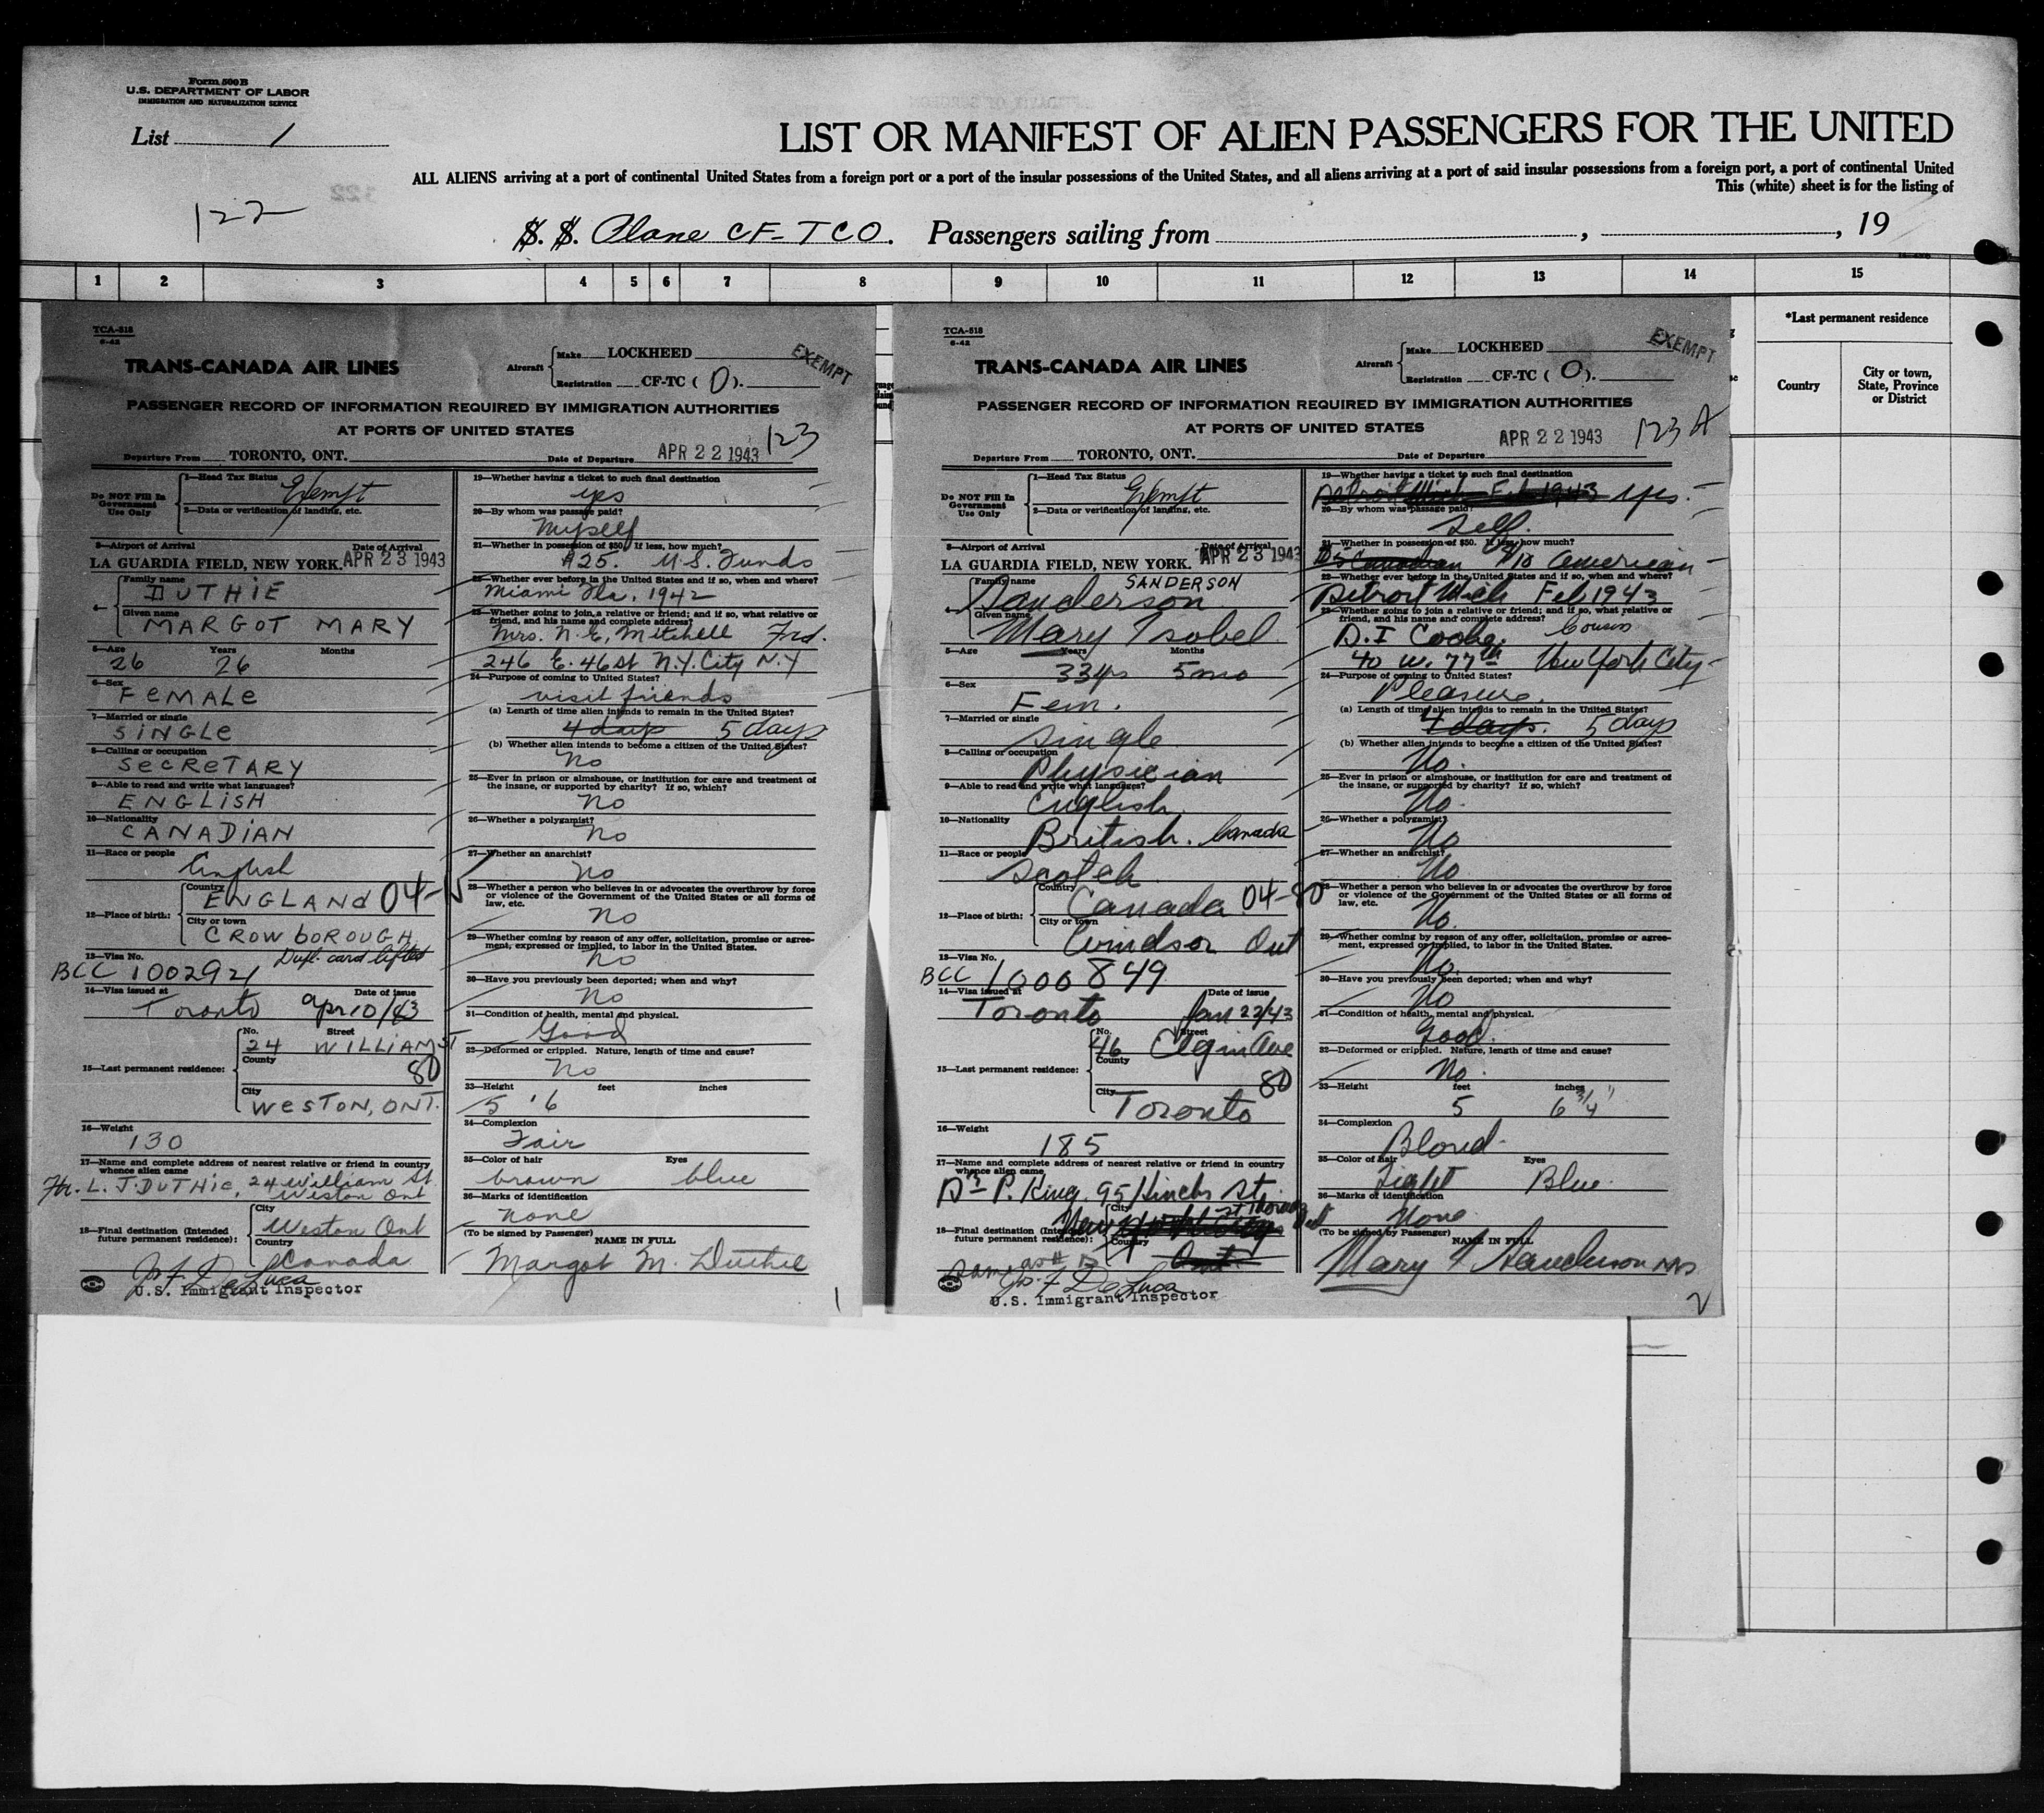 Form 500 B
U.S. DEPARTMENT OF LABOR
IMMIGRATION AND NATURALIZATION SERVICE
List 1
LIST OR MANIFEST OF ALIEN PASSENGERS FOR THE UNITED
ALL ALIENS arriving at a port of continental United States from a foreign port or a port of the insular possessions of the United States, and all aliens arriving at a port of said insular possessions from a foreign port, a port of continental United
This (white) sheet is for the listing of
122
S. S. Plane CF-TCO. Passengers sailing from , , 19
1 2 3 4 5 6 7 8 9 10 11 12 13 14 15
*Last permanent residence
Country
City or town, State, Province or District
TCA-518
6-42
TRANS-CANADA AIR LINES
Aircraft Make LOCKHEED
Registration CF-TC ( O ).
EXEMPT
PASSENGER RECORD OF INFORMATION REQUIRED BY IMMIGRATION AUTHORITIES
AT PORTS OF UNITED STATES
123
Departure From TORONTO, ONT. Date of Departure APR 22 1943
Do NOT Fill In Government Use Only
1—Head Tax Status Exempt
2—Data or verification of landing, etc.
3—Airport of Arrival Date of Arrival
LA GUARDIA FIELD, NEW YORK. APR 23 1943
4— Family name DUTHIE
Given name MARGOT MARY
5—Age Years Months
26 26
6—Sex
FEMALE
7—Married or single
SINGLE
8—Calling or occupation
SECRETARY
9—Able to read and write what languages?
ENGLISH
10—Nationality
CANADIAN
11—Race or people
English
12—Place of birth: Country ENGLAND 04-
City or town CROWBOROUGH
13—Visa No. Dupl. card lifted
BCC 1002921
14—Visa issued at Date of issue
Toronto Apr 10/43
15—Last permanent residence: No. Street
24 WILLIAM ST
County 80
City WESTON, ONT.
16—Weight
130
17—Name and complete address of nearest relative or friend in country whence alien came
Fr. L. J. DUTHIE, 24 William St. Weston Ont
18—Final destination (Intended future permanent residence): City Weston Ont
Country Canada
Jos F. DeLuca
U.S. Immigrant Inspector
19—Whether having a ticket to such final destination
yes
20—By whom was passage paid?
Myself
21—Whether in possession of $50. If less, how much?
$25. U.S. Funds
22—Whether ever before in the United States and if so, when and where?
Miami Fla. 1942
23—Whether going to join a relative or friend; and if so, what relative or friend, and his name and complete address?
Mrs. N. E. Mitchell Frd.
246 E. 46 st N.Y. City N.Y
24—Purpose of coming to United States?
visit friends
(a) Length of time alien intends to remain in the United States?
4 days 5 days
(b) Whether alien intends to become a citizen of the United States?
No
25—Ever in prison or almshouse, or institution for care and treatment of the insane, or supported by charity? If so, which?
No
26—Whether a polygamist?
No
27—Whether an anarchist?
No
28—Whether a person who believes in or advocates the overthrow by force or violence of the Government of the United States or all forms of law, etc.
No
29—Whether coming by reason of any offer, solicitation, promise or agreement, expressed or implied, to labor in the United States.
No
30—Have you previously been deported; when and why?
No
31—Condition of health, mental and physical.
Good
32—Deformed or crippled. Nature, length of time and cause?
No
33—Height feet inches
5 '6
34—Complexion
Fair
35—Color of hair Eyes
brown blue
36—Marks of identification
none
(To be signed by Passenger) NAME IN FULL
Margot M. Duthie
1
TCA-518
6-42
TRANS-CANADA AIR LINES
Aircraft Make LOCKHEED
Registration CF-TC ( O ).
EXEMPT
PASSENGER RECORD OF INFORMATION REQUIRED BY IMMIGRATION AUTHORITIES
AT PORTS OF UNITED STATES
123 A
Departure From TORONTO, ONT. Date of Departure APR 22 1943
Do NOT Fill In Government Use Only
1—Head Tax Status Exempt
2—Data or verification of landing, etc.
3—Airport of Arrival Date of Arrival
LA GUARDIA FIELD, NEW YORK. APR 23 1943
4— Family name SANDERSON
Sanderson
Given name Mary Isobel
5—Age Years Months
33 yrs 5 mo
6—Sex
Fem.
7—Married or single
Single
8—Calling or occupation
Physician
9—Able to read and write what languages?
English
10—Nationality
British. Canada
11—Race or people
Scotch
12—Place of birth: Country Canada 04-80
City or town Windsor Ont
13—Visa No.
BCC 1000849
14—Visa issued at Date of issue
Toronto Jan 22/43
15—Last permanent residence: No. Street
46 Elgin Ave
County 80
City Toronto
16—Weight
185
17—Name and complete address of nearest relative or friend in country whence alien came
Dr P. King. 95 Hincks St. St Thomas Ont
18—Final destination (Intended future permanent residence): City New York City
Country Ont
Same as # 15
Jos. F DeLuca
U.S. Immigrant Inspector
19—Whether having a ticket to such final destination
Detroit Mich Feb 1943 yes.
20—By whom was passage paid?
Self.
21—Whether in possession of $50. If less, how much?
Canadian American
22—Whether ever before in the United States and if so, when and where?
Detroit Mich Feb 1943
23—Whether going to join a relative or friend; and if so, what relative or friend, and his name and complete address?
D. I Cooke. Cousin
40 W. 77th New York City
24—Purpose of coming to United States?
Pleasure.
(a) Length of time alien intends to remain in the United States?
4 days. 5 days
(b) Whether alien intends to become a citizen of the United States?
No.
25—Ever in prison or almshouse, or institution for care and treatment of the insane, or supported by charity? If so, which?
No.
26—Whether a polygamist?
No
27—Whether an anarchist?
No
28—Whether a person who believes in or advocates the overthrow by force or violence of the Government of the United States or all forms of law, etc.
No.
29—Whether coming by reason of any offer, solicitation, promise or agreement, expressed or implied, to labor in the United States.
No.
30—Have you previously been deported; when and why?
No
31—Condition of health, mental and physical.
Good.
32—Deformed or crippled. Nature, length of time and cause?
No.
33—Height feet inches
5 6 3/4"
34—Complexion
Blond.
35—Color of hair Eyes
Light Blue.
36—Marks of identification
None
(To be signed by Passenger) NAME IN FULL
Mary I Sanderson
2